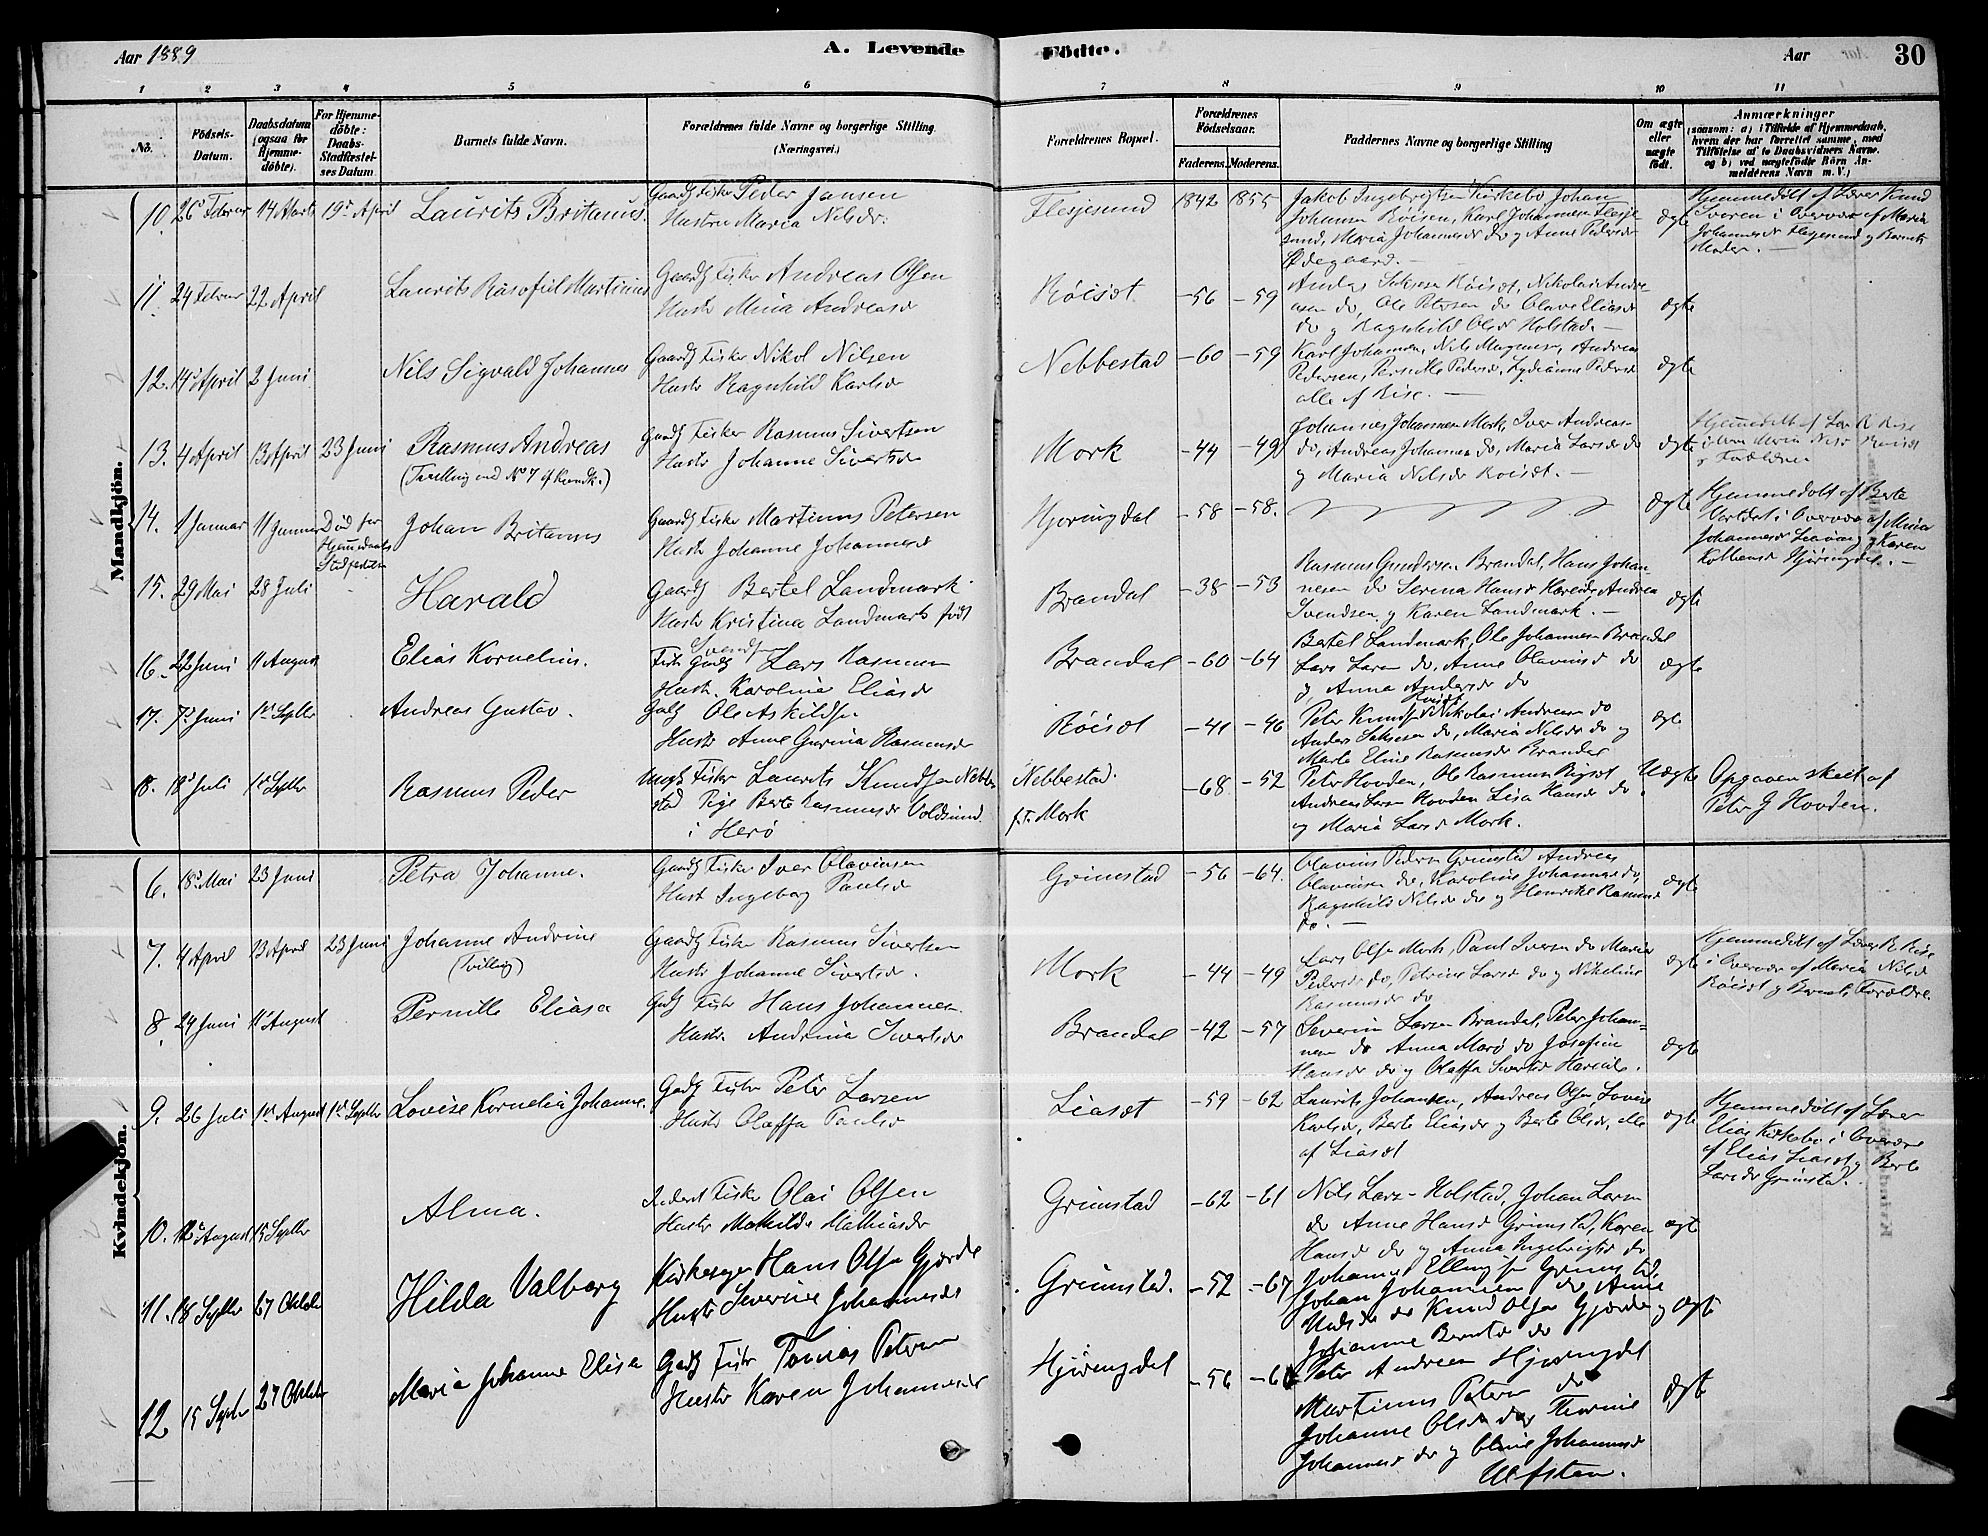 Aar 1889
A. Levende Födte.
Aar
30
1 2 3 4 5 6 7 8 9 10 11
No.
Födsels-Datum.
Daabsdatum (ogsaa for Hjemmedöbte).
For Hjemmedöbte: Daabs-Stadfæstelses Datum.
Barnets fulde Navn.
Forældrenes fulde Navne og borgerlige Stilling (Næringsvei.)
Forældrenes Bopæl.
Forældrenes Födselsaar.
Faderens. Moderens.
Faddernes Navne og borgerlige Stilling
Om ægte eller uægte födt.
Anmærkninger
(saasom: a) i Tilfælde af Hjemmedaab, hvem der har forrettet samme, med Tilföielse af to Daabsvidners Navne, og b) ved uægtefödte Börn Anmelderens Navn m. V.)
Mandkjön.
10. 26 Februar 14 Marts 19 April Laurits Britanus
Gaardb Fisker Peder Jansen
Hustru Maria Nilsdr.
Flesjesund 1842 1855
Jakob Ingebrigtsen Kirkebö Johan
Johansen Röisen, Karl Johannesen Flesje
sund, Maria Johannesdr do g Anne Pedersdr
Ødegaard. —
ægte
Hjemmedöbt af Lærer Knud
Sveren i Overvær af Maria
Johannesdr Flesjesund g Barnets
Moder. —
11. 24 Februar 22 April Laurits Rasofiel Martinus
Gaardb Fisker Andreas Olsen
Hustr Mina Andreasdr
Röisæt. –56 –59
Röisæt, Nikolai Andre-
asen do, Ole Petersen do Olave Eliasdr
do g Ragnhild Olsdr Holstad. —
ægte
12. 14 April 2 Juni Nils Sigvald Johannes
Gaardb Fisker Nikol Nilsen
Hustr Ragnhild Karlsdr
Nebbestad –60 –59
Karl Johansen, Nils Magnusen, Andreas
Pedersen, Pernille Pedersdr, Lydianne Pedersdr
alle af Rise. —
ægte
13. 4 April 13 April 23 Juni Rasmus Andreas
(Tvilling med No 7 af Kvindk.)
Gaardb Fisker Rasmus Sivertsen
Hustr Johanne Sivertsdr
Mork –44 –49
Johannes Johannesen Mork, Iver Andreas-
do, Andreas Johannesen do, Maria Larsdr do
g Maria Nilsdr Roisæt. —
ægte
Hjemmedöbt af Lær R Rise
Maria Nilsdr Roisæt
g Forældrene
14. 1 Januar 11 Januar Död før
Hjemmedaabs
Stadfæstelse
Johan Britanus
Gaardb Fisker Martinus Petersen
Hustr Johanne Johannesdr
Hjoringdal –58 –58.
ægte
Hjemmedöbt af Berte
i Overvær af Mina
Johannesdr g Karen
Hjöringdal. —
15. 29 Mai 28 Juli Harald
Gaardb Bertel Landmark
Hustr Kristina Landmark födt
Svendsen
Brandal –38 –53
Rasmus Gundersen Brandal, Hans Johan
nesen do Serina Hansdr Hareide Andrea
Svendsen g Karen Landmark. —
ægte
16. 22 Juni 11 August Elias Kornelius.
Fisk Gaardb Lars Rasmusen
Hustr. Karoline Eliasdr
Brandal –60 –64
Bertel Landmark, Ole Johannesen Brandal
Lars Larsen do, Anne Olavinsdr do
g Anna Andersdr do
ægte
17. 7 Juni 1st Septbr Andreas Gustav.
Gaardb Ole Askildsen
Hustr Anne Gurina Rasmusdr
Röisæt –41 –46
Peter Knudsen Röisæt Nikolai Andreasen do
Anders do, Maria Nilsdr do g
Marte Eline Rasmusdr Brandal
ægte
18. 18 Juli 1st Septbr Rasmus Peder
Ungk Fisker Laurits Knudsen Nebbe
stad Pige Berte Rasmusdr Voldsund
i Herö
Nebbestad.
f.T. Mork
–68 –52
Peter Hovden, Ole Rasmusen Rigsæt
Andreas Larsen Hovden Lisa Hansdr do
og Maria Larsdr Mork.
Uægte
Opgaven skeet af
Peter G Hovden.
Kvindekjön.
6. 18 Mai 23 Juni Petra Johanne.
Gaardb Fisker Iver Olavinsen
Hustr Ingeborg Paulsdr
Grimstad –56 –64.
Olavins Pedersen Grimstad Andreas
Olavinsen do, Karoline Johannesdr do,
Ragnhild Nilsdr do g Henrikke Rasmusdr
do. —
ægte
7. 4 April 13 April 23 Juni Johanne Andrine
(Tvilling)
Gaardb Fisker Rasmus Sivertsen
Hustr Johanne Sivertsdr.
Mork –44 –49
Lars Olsen Mork, Paul Iversen do Maria
Pedersdr do, Petrine Larsdr do g Nikoline
Rasmusdr do
ægte
Hjemmedöbt af Lærer R. Rise
i Overvær af Maria Nilsdr
Röisæt g Barnets Forældre.
8. 24 Juni 11 August Pernille Eliasa
Gaardb Fisker Hans Johannesen
Hustr. Andrina Sivertsdr
Brandal –42 –57
Severin Larsen Brandal, Peter Johan-
nesen do Anna Marö do Josefine
Hansdr do g Olaffa Sivertsdr Hareide.
ægte
9. 26 Juli 1st August 1st Septbr Lovise Kornelia Johanne.
Gaardb Fisker Peter Larsen
Hustr Olaffa Paulsdr
Liasæt –59 –62
Laurits Johansen, Andreas Olsen Lovise
Karlsdr, Berte Eliasdr g Berte Olsdr, alle
af Liasæt
ægte
Hjemmedöbt af Lærer
Elias Kirkebö i Overvær
af Elias Liasæt g Berte
Larsdr Grimstad.
10. 12 August 15 Septbr Alma.
Inderst Fisker Olai Olsen
Hustr Mathilde Mathiasdr
Grimstad –62 –61
Nils Lars- Holstad, Johan Larsen
do Anne Hansdr Grimstad, Karen
Hansdr do g Anna Ingebrigtsdr do
ægte
11. 18 Septbr 27 Oktobr Hilda Valborg
Kirkesanger Hans Olsen Gjerde
Hustr Severine Johannesdr
Grimstad. –52 –67
Johannes Ellingsen Grimstad,
Johan Johannesen do, Anne
do Knud Olsen Gjerde g
Johanne Berntsdr do
ægte
12 15 Septbr 27 Oktobr Maria Johanne Elisa
Gaardb Fisker Tomas Petersen
Hustr Karen Johannesdr
Hjöringdal –56
Peter Andreasen Hjöringdal
Martinus Petersen do
Johanne Olsdr do, Thorine
Johannesdr do g Oline Johannesdr
Ulfsten.
ægte